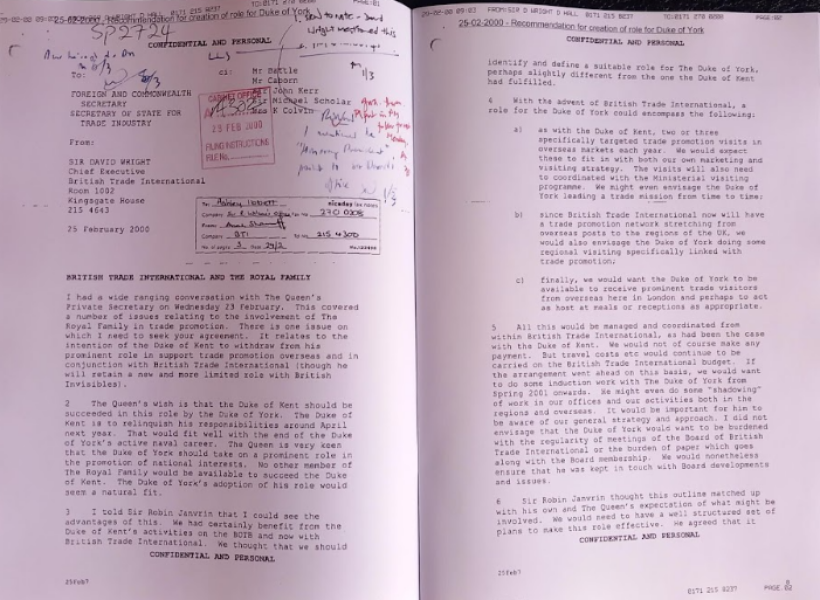 25-02-2000 - Recommendation for creation of role for Duke of York
SP2724
CONFIDENTIAL AND PERSONAL
To:
FOREIGN AND COMMONWEALTH
SECRETARY
SECRETARY OF STATE FOR
TRADE INDUSTRY
cc:
Mr Battle
Mr Caborn
John Kerr
Michael Scholar
K Colvin
1/3
CABINET OFFICE
25 FEB 2000
FILING INSTRUCTIONS
FILE No.
From:
SIR DAVID WRIGHT
Chief Executive
British Trade International
Room 1002
Kingsgate House
215 4643
25 February 2000
270 0208
BTI
215 4300
No. of pages 3
BRITISH TRADE INTERNATIONAL AND THE ROYAL FAMILY
I had a wide ranging conversation with The Queen's
Private Secretary on Wednesday 23 February. This covered
a number of issues relating to the involvement of The
Royal Family in trade promotion. There is one issue on
which I need to seek your agreement. It relates to the
intention of the Duke of Kent to withdraw from his
prominent role in support trade promotion overseas and in
conjunction with British Trade International (though he
will retain a new and more limited role with British
Invisibles).
2 The Queen's wish is that the Duke of Kent should be
succeeded in this role by the Duke of York. The Duke of
Kent is to relinquish his responsibilities around April
next year. That would fit well with the end of the Duke
of York's active naval career. The Queen is very keen
that the Duke of York should take on a prominent role in
the promotion of national interests. No other member of
The Royal Family would be available to succeed the Duke
of Kent. The Duke of York's adoption of his role would
seem a natural fit.
3 I told Sir Robin Janvrin that I could see the
advantages of this. We had certainly benefit from the
Duke of Kent's activities on the BOTB and now with
British Trade International. We thought that we should
CONFIDENTIAL AND PERSONAL
25feb7
FROM:SIR D WRIGHT D HALL 0171 215 8237
PAGE:02
25-02-2000 - Recommendation for creation of role for Duke of York
CONFIDENTIAL AND PERSONAL
identify and define a suitable role for The Duke of York,
perhaps slightly different from the one the Duke of Kent
had fulfilled.
4 With the advent of British Trade International, a
role for the Duke of York could encompass the following:
a) as with the Duke of Kent, two or three
specifically targeted trade promotion visits in
overseas markets each year. We would expect
these to fit in with both our own marketing and
visiting strategy. The visits will also need
to coordinated with the Ministerial visiting
programme. We might even envisage the Duke of
York leading a trade mission from time to time;
b) since British Trade International now will have
a trade promotion network stretching from
overseas posts to the regions of the UK, we
would also envisage the Duke of York doing some
regional visiting specifically linked with
trade promotion;
c) finally, we would want the Duke of York to be
available to receive prominent trade visitors
from overseas here in London and perhaps to act
as host at meals or receptions as appropriate.
5 All this would be managed and coordinated from
within British Trade International, as had been the case
with the Duke of Kent. We would not of course make any
payment. But travel costs etc would continue to be
carried on the British Trade International budget. If
the arrangement went ahead on this basis, we would want
to do some induction work with The Duke of York from
Spring 2001 onwards. He might even do some "shadowing"
of work in our offices and our activities both in the
regions and overseas. It would be important for him to
be aware of our general strategy and approach. I did not
envisage that the Duke of York would want to be burdened
with the regularity of meetings of the Board of British
Trade International or the burden of paper which goes
along with the Board membership. We would nonetheless
ensure that he was kept in touch with Board developments
and issues.
6 Sir Robin Janvrin thought this outline matched up
with his own and The Queen's expectation of what might be
involved. We would need to have a well structured set of
plans to make this role effective. He agreed that it
CONFIDENTIAL AND PERSONAL
25feb7
0171 215 8237
PAGE.02